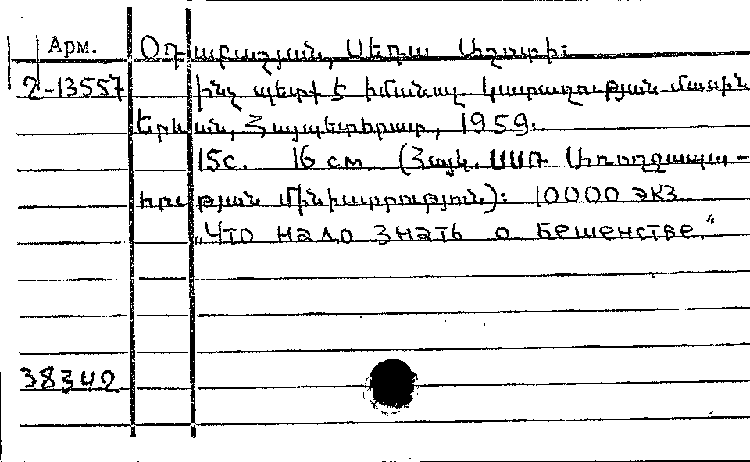 Арм. Օդաբաշյան, Սեդա Աշոտի:
2-13557 Ինչ պետք է իմանալ կատաղության մասին
Երևան, Հայպետհրատ, 1959.
15с. 16 см (Հայկ. ՍՍՌ Առողջապա-
հության մինիստրություն): 10000 экз
„Что надо знать о бешенстве."
38342